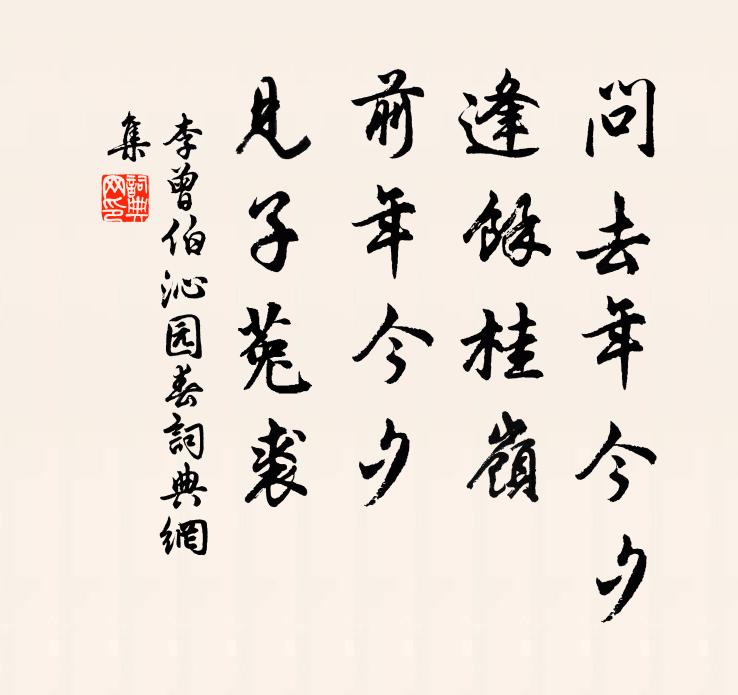 問去年今夕
逢餘桂嶺
前年今夕
見子菟裘
李曾伯沁园春詞典網
集
詞典
网印